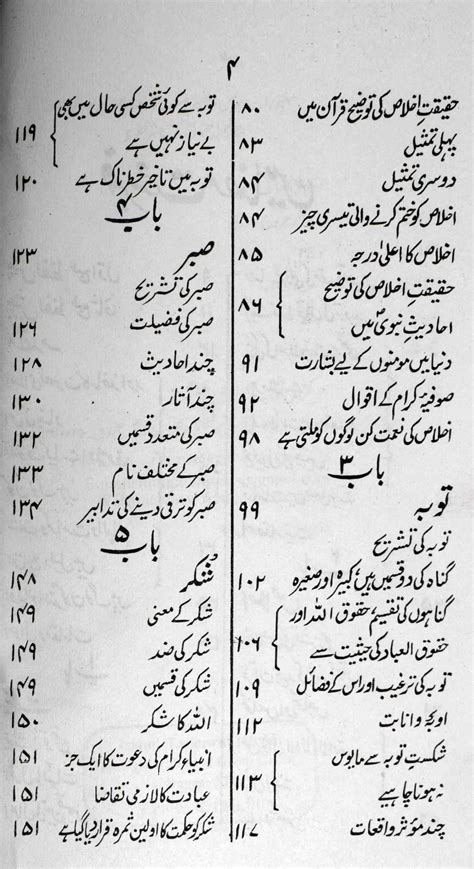 ۴
حقیقتِ اخلاص کی توضیح قرآن میں ۸۰
پہلی تمثیل ۸۳
دوسری تمثیل ۸۴
اخلاص کو ختم کرنے والی تیسری چیز ۸۴
اخلاص کا اعلیٰ درجہ ۸۵
حقیقتِ اخلاص کی توضیح
احادیثِ نبوی میں ۸۶
دنیا میں مومنوں کے لیے بشارت ۹۱
صوفیۂ کرام کے اقوال ۹۲
اخلاص کی نعمت کن لوگوں کو ملتی ہے ۹۸
باب ۳
توبہ ۹۹
توبہ کی تشریح
گناہ کی دو قسمیں ہیں کبیرہ اور صغیرہ ۱۰۲
گناہوں کی تقسیم حقوق اللہ اور
حقوق العباد کی حیثیت سے ۱۰۶
توبہ کی ترغیب اور اس کے فضائل ۱۰۹
اوبہ و انابت ۱۱۲
شکستِ توبہ سے مایوس
نہ ہونا چاہیے ۱۱۳
چند مؤثر واقعات ۱۱۷
توبہ سے کوئی شخص کسی حال میں بھی
بے نیاز نہیں ہے ۱۱۹
توبہ میں تاخیر خطرناک ہے ۱۲۰
باب ۴
صبر ۱۲۳
صبر کی تشریح
صبر کی فضیلت ۱۲۶
چند احادیث ۱۲۸
چند آثار ۱۳۰
صبر کی متعدد قسمیں ۱۳۲
صبر کے مختلف نام ۱۳۳
صبر کو ترقی دینے کی تدابیر ۱۳۴
باب ۵
شکر ۱۴۸
شکر کے معنی ۱۴۹
شکر کی ضد ۱۴۹
شکر کی قسمیں ۱۴۹
اللہ کا شکر ۱۵۰
انبیاء کرام کی دعوت کا ایک جز ۱۵۱
عبادت کا لازمی تقاضا ۱۵۱
شکر کو حکمت کا اولین ثمرہ قرار دیا گیا ہے ۱۵۱